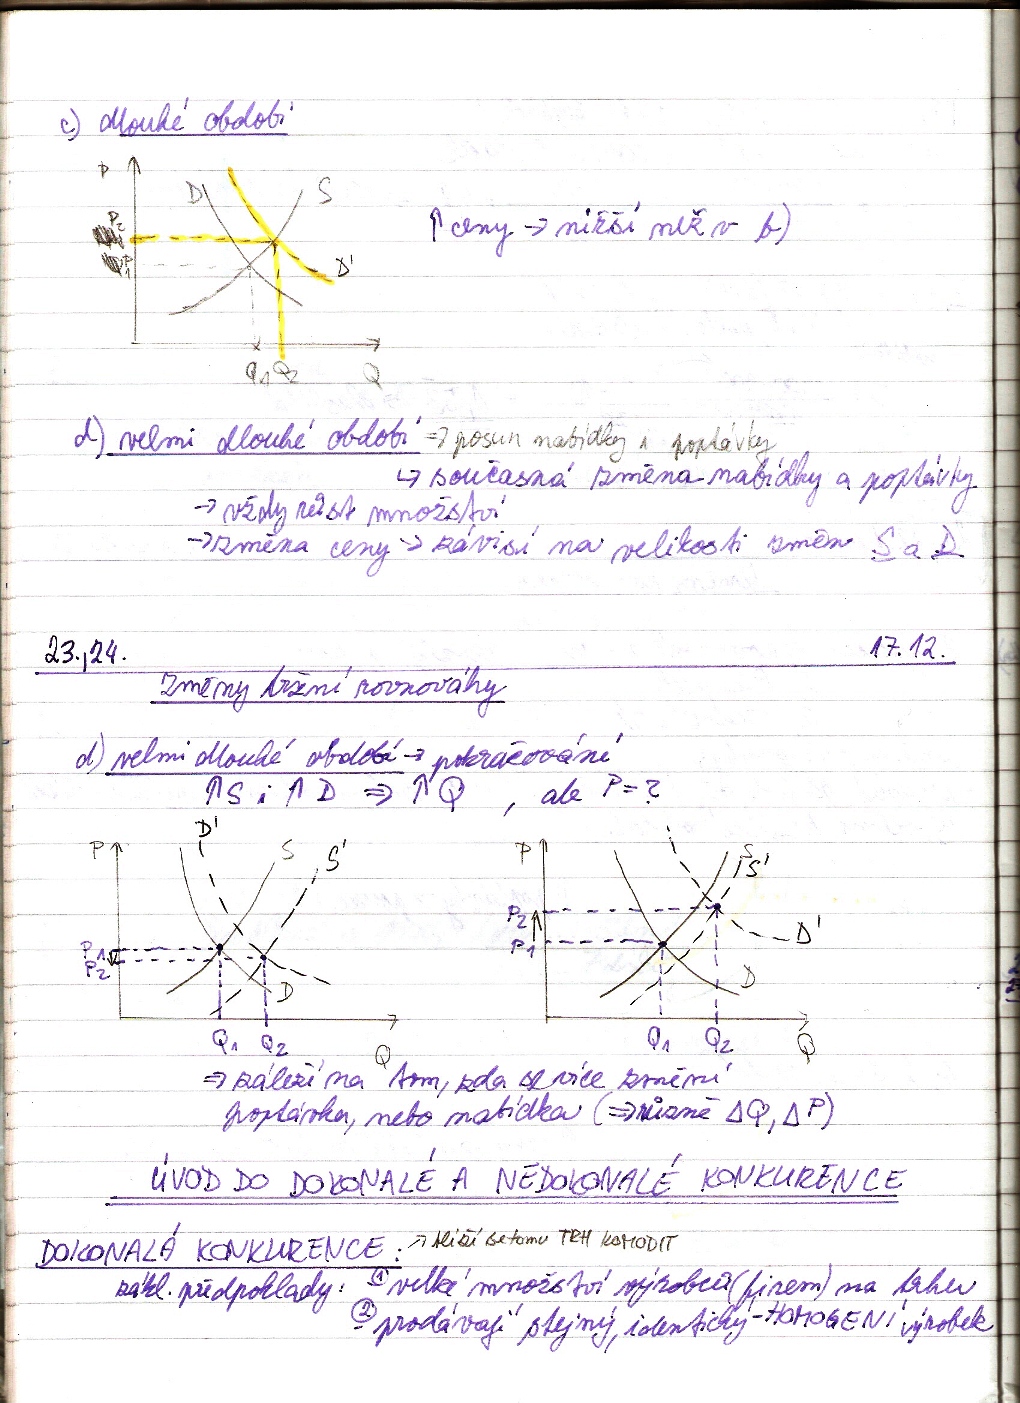 c) dlouhé období
P
D
S
↑ ceny → nižší než v b)
P2
P1
D'
Q1 Q2 Q
d) velmi dlouhé období ⇒ posun nabídky i poptávky
↳ současná změna nabídky a poptávky
→ vždy růst množství
→ změna ceny → závisí na velikosti změn S a D
23.,24. 17.12.
Změny tržní rovnováhy
d) velmi dlouhé období → pokračování
↑S i ↑D ⇒ ↑Q, ale P=?
P D' S S'
P1
P2
D
Q1 Q2 Q
P S S'
P2
P1
D'
D
Q1 Q2 Q
⇒ záleží na tom, zda se více změní
poptávka, nebo nabídka (⇒ různé ΔQ, ΔP)
ÚVOD DO DOKONALÉ A NEDOKONALÉ KONKURENCE
DOKONALÁ KONKURENCE: → blíží se tomu TRH KOMODIT
zákl. předpoklady: ① velké množství výrobců (firem) na trhu
② prodávají stejný, identický - HOMOGENÍ výrobek